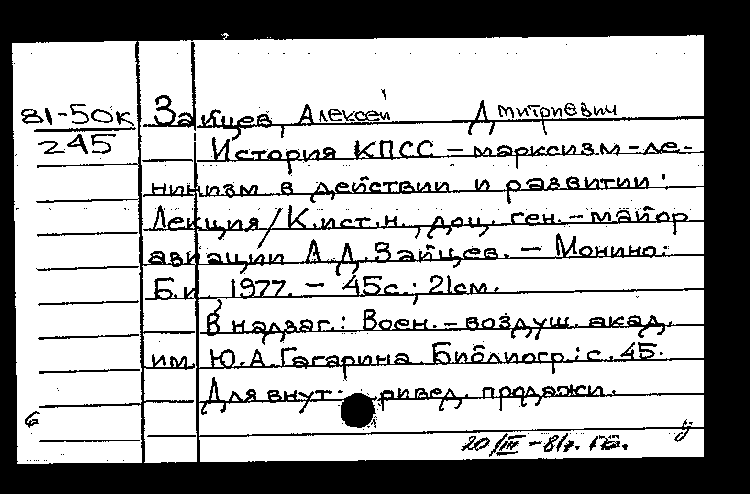 81-50к
245
Зайцев, Алексей Дмитриевич
История КПСС – марксизм-ле-
нинизм в действии и развитии:
Лекция/К.ист.н., доц. ген.-майор
авиации А.Д.Зайцев. – Монино:
Б.и., 1977. – 45с.; 21см.
В надзаг.: Воен.-воздуш. акад.
им. Ю.А.Гагарина. Библиогр.: с. 45.
Для внут ривед. продажи.
6
20/III – 81г.
у